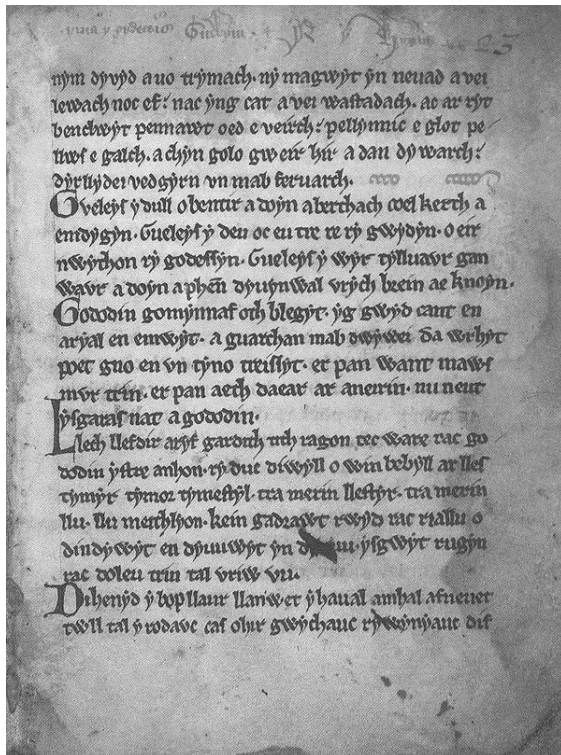 nym dyvyd a uo trymach. ny magwyt yn neuad a vei
lewach noc ef. nac yng cat a vei wastadach. ac ar ryt
benclwyt pennawt oed e veirch. pellynnic e glot pe
llws e galch. a chyn golo gweir hir a dan dywarch.
dyrllydei vedgyrn vn mab feruarch.
Gveleys y dull o bentir a doyn aberthach coel kerth a
emdygyn. Gueleys y deu oc eu tre re ry gwydyn. o eir
nwython ry godessyn. Gueleys y wyr tylluavr gan
wavr a doyn a phen dyuynwal vrych brein ae knoyn.
Gododin gomynnaf oth blegyt. yg gwyd cant en
aryal en emwyt. a guarchan mab dwywei da wrhyt
poet gno en vn tyno treissyt. er pan want maws
mvr trin. er pan aeth daear ar aneirin. nu neut
ysgaras nat a gododin.
Llech llefdir aryf gardith tith ragon tec ware rac go
dodin ystre anhon. ry duc diwyll o win bebyll ar lles
tymyr tymor tymestyl. tra merin llestyr. tra merin
llu. llu meithlyon. kein gadrawt rwyd rac riallu o
dindywyt en dyuuwyt yn ysgwyt rugyn
rac doleu trin tal vriw vu.
Dihenyd y bop llaur llanwet y haual amhal afneuet
twll tal y rodavc cas ohir gwychauc rywynyauc dif